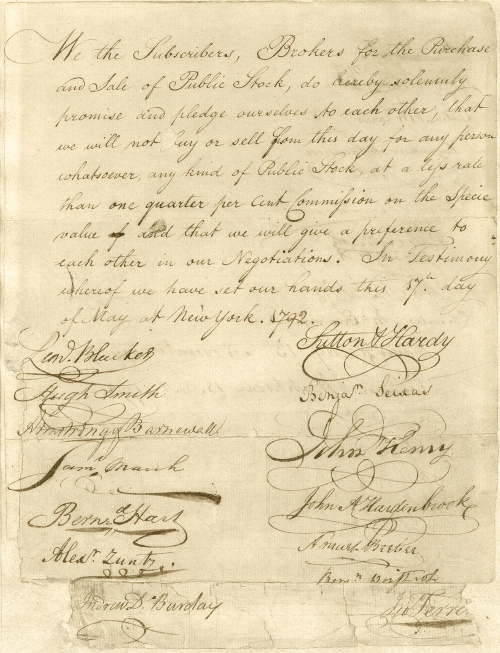 We the Subscribers, Brokers for the Purchase
and Sale of Public Stock, do hereby solemnly
promise and pledge ourselves to each other, that
we will not buy or sell from this day for any person
whatsoever, any kind of Public Stock, at a less rate
than one quarter per Cent Commission on the Specie
value & and that we will give a preference to
each other in our Negotiations. In Testimony
whereof we have set our hands this 17th day
of May at New York. 1792.
Leond. Bleecker
Hugh Smith
Armstrong & Barnewall
Saml. March
Bernd. Hart
Alexr. Zuntz.
Andrew D. Barclay
Sutton & Hardy
Benjan. Seixas
John Henry
John A Hardenbrook